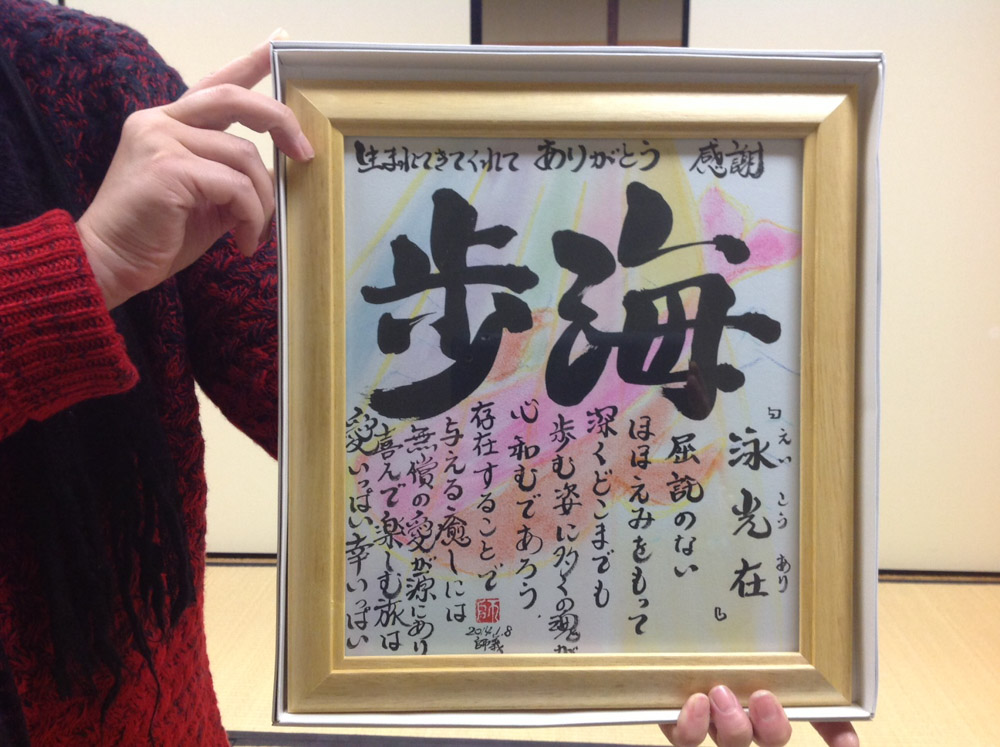 生まれてきてくれて ありがとう 感謝
海歩
「泳光在」
えい こう あり
屈託のない
ほほえみをもって
深くどこまでも
歩む姿に多くの魂が
心和むであろう
存在することで
与える癒しには
無償の愛が源にあり
喜んで楽しむ旅は
愛いっぱい幸いっぱい
2014.1.8